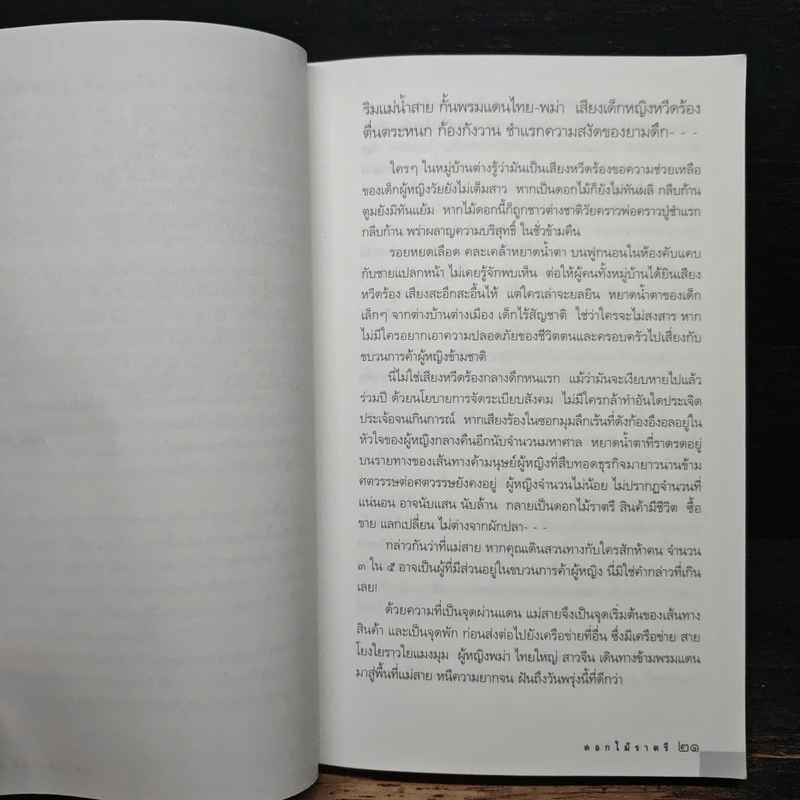 ริมแม่น้ำสาย กั้นพรมแดนไทย-พม่า เสียงเด็กหญิงหวีดร้อง
ตื่นตระหนก ก้องกังวาน ชำแรกความสงัดของยามดึก- - -
ใครๆ ในหมู่บ้านต่างรู้ว่ามันเป็นเสียงหวีดร้องขอความช่วยเหลือ
ของเด็กผู้หญิงวัยยังไม่เต็มสาว หากเป็นดอกไม้ก็ยังไม่ทันผลิ กลีบก้าน
ตูมยังมิทันแย้ม หากไม้ดอกนี้ก็ถูกชาวต่างชาติวัยคราวพ่อคราวปู่ชำแรก
กลีบก้าน พร่าผลาญความบริสุทธิ์ ในชั่วข้ามคืน
รอยหยดเลือด คละเคล้าหยาดน้ำตา บนฟูกนอนในห้องคับแคบ
กับชายแปลกหน้า ไม่เคยรู้จักพบเห็น ต่อให้ผู้คนทั้งหมู่บ้านได้ยินเสียง
หวีดร้อง เสียงสะอึกสะอื้นไห้ แต่ใครเล่าจะยลยิน หยาดน้ำตาของเด็ก
เล็กๆ จากต่างบ้านต่างเมือง เด็กไร้สัญชาติ ใช่ว่าใครจะไม่สงสาร หาก
ไม่มีใครอยากเอาความปลอดภัยของชีวิตตนและครอบครัวไปเสี่ยงกับ
ขบวนการค้าผู้หญิงข้ามชาติ
นี่ไม่ใช่เสียงหวีดร้องกลางดึกหนแรก แม้ว่ามันจะเงียบหายไปแล้ว
ร่วมปี ด้วยนโยบายการจัดระเบียบสังคม ไม่มีใครกล้าทำอันใดประเจิด
ประเจ้อจนเกินการณ์ หากเสียงร้องในซอกมุมลึกเร้นที่ดังก้องอึงอลอยู่ใน
หัวใจของผู้หญิงกลางคืนอีกนับจำนวนมหาศาล หยาดน้ำตาที่ราดรดอยู่
บนรายทางของเส้นทางค้ามนุษย์ผู้หญิงที่สืบทอดธุรกิจมายาวนานข้าม
ศตวรรษต่อศตวรรษยังคงอยู่ ผู้หญิงจำนวนไม่น้อย ไม่ปรากฏจำนวนที่
แน่นอน อาจนับแสน นับล้าน กลายเป็นดอกไม้ราตรี สินค้ามีชีวิต ซื้อ
ขาย แลกเปลี่ยน ไม่ต่างจากผักปลา- - -
กล่าวกันว่าที่แม่สาย หากคุณเดินสวนทางกับใครสักห้าคน จำนวน
๓ ใน ๕ อาจเป็นผู้ที่มีส่วนอยู่ในขบวนการค้าผู้หญิง นี่มิใช่คำกล่าวที่เกิน
เลย!
ด้วยความที่เป็นจุดผ่านแดน แม่สายจึงเป็นจุดเริ่มต้นของเส้นทาง
สินค้า และเป็นจุดพัก ก่อนส่งต่อไปยังเครือข่ายที่อื่น ซึ่งมีเครือข่าย สาย
โยงใยราวใยแมงมุม ผู้หญิงพม่า ไทยใหญ่ สาวจีน เดินทางข้ามพรมแดน
มาสู่พื้นที่แม่สาย หนีความยากจน ฝันถึงวันพรุ่งนี้ที่ดีกว่า
ดอกไม้ราตรี ๒๑